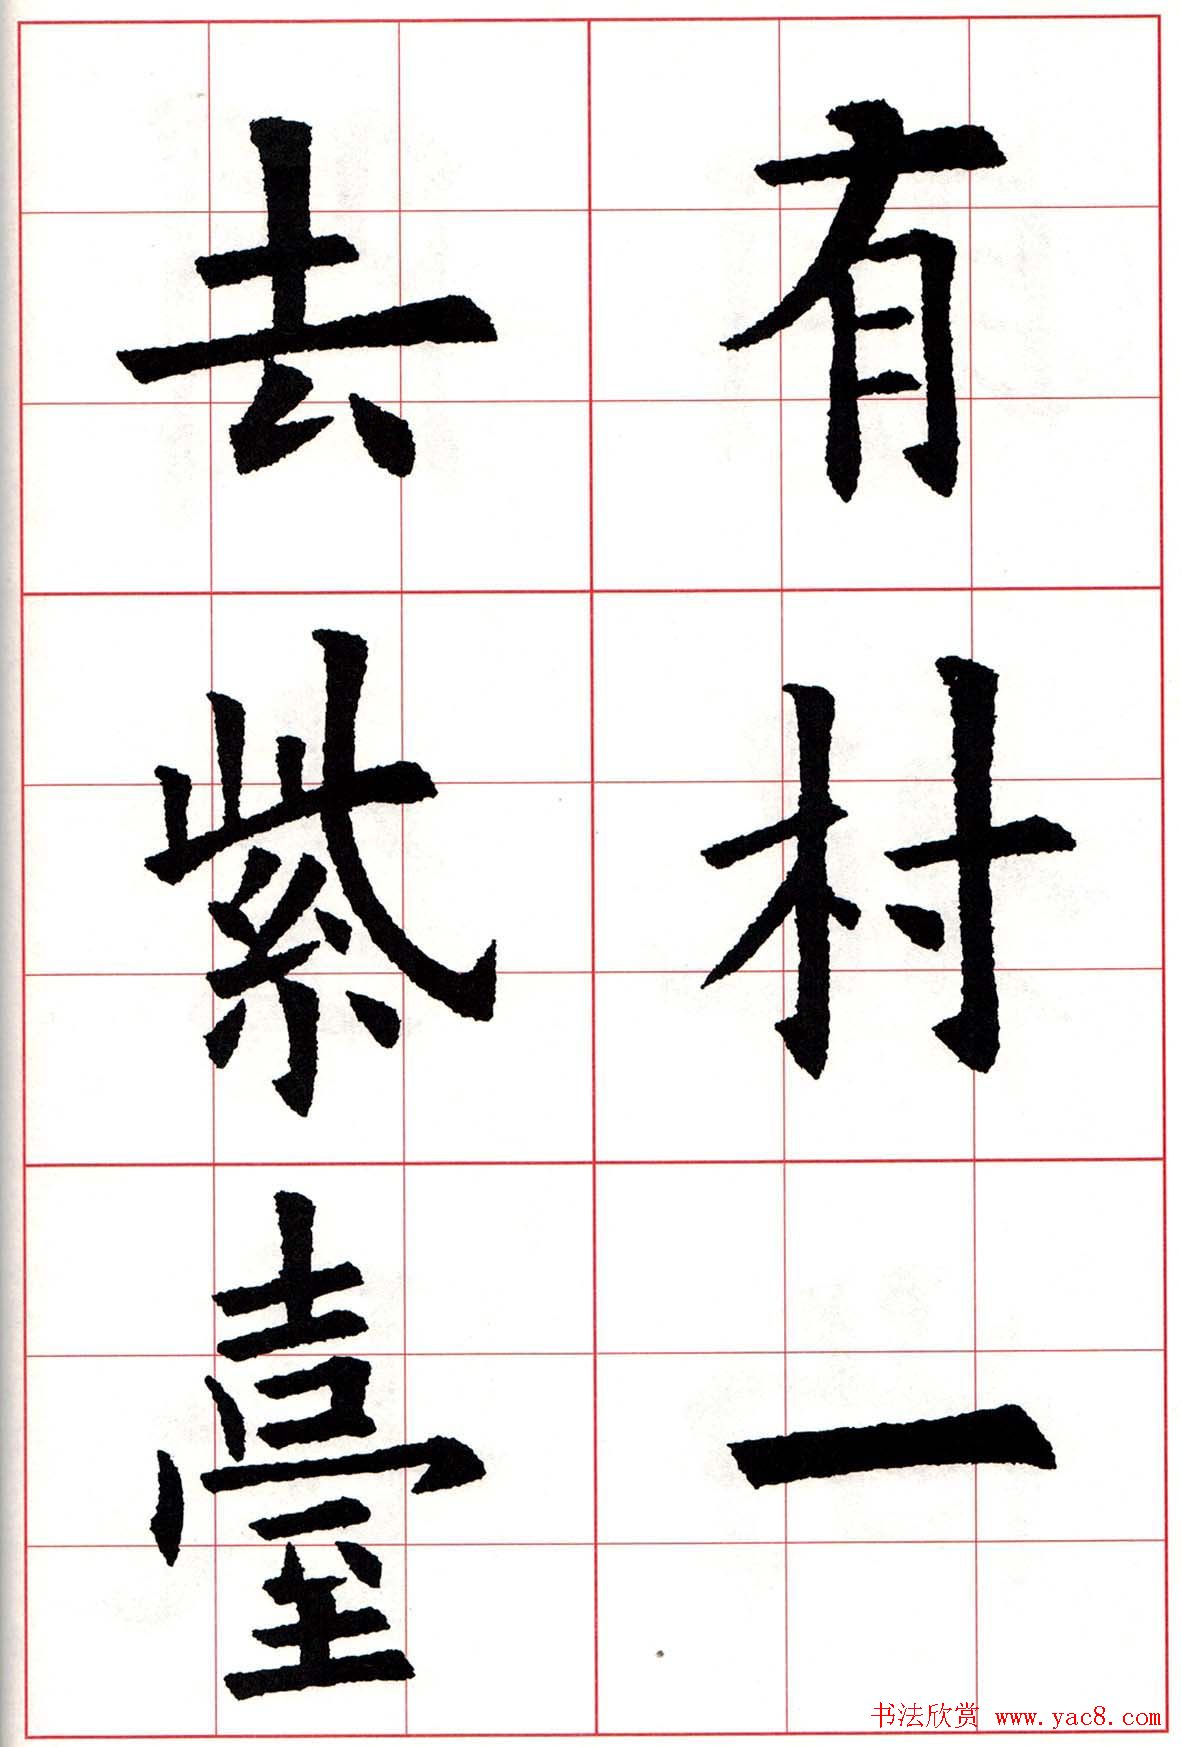 有村一
去紫臺
书法欣赏 www.yac8.com